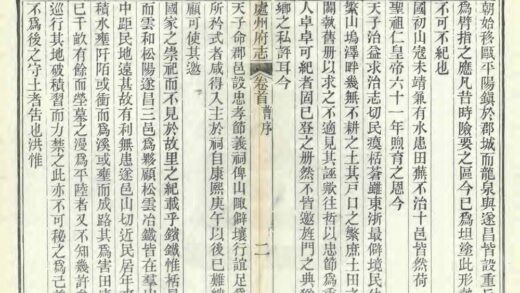 朝始移甌平陽鎮於郡城而龍泉與遂昌皆設重兵
為臂指之應凡昔時險要之區今已為坦塗此形勢
可不紀也
國初山寇未靖兼有水患田蕪不治十邑皆然荷
聖祖仁皇帝六十一年煦育之恩今
天子治益求治志切民瘼栝蒼雖東浙最僻壤民什
繁山塢澤畔幾無不耕之土其戶口之繁庶土田之
闢執舊冊以求之不適見其誣歟往哲以忠節為重
人卓卓可紀者固已登之冊然不皆邀旌門之典
鄉之私許耳今
處州府志 卷首 舊序 二
天子命郡邑設忠孝節義祠俾山陬僻壤行誼足為
所矜式者咸得入主於祠自康熙庚午以後已
顧可使其邀
國家之崇祀而不見於故里之紀載乎鑌鐵惟栝
而雲和松陽遂昌三邑為夥顧松雲冶鐵皆在羣
中距民地遠甚故有利無患遂邑山切近民居年
積水壅阡陌或衝而為溪或壅而成路其為害田
巳千畝有餘而塋墓之漫為平陸者又不知幾許
巡行其地破積習而力禁之此亦不可秘之為己
不為後之守土者告也洪惟